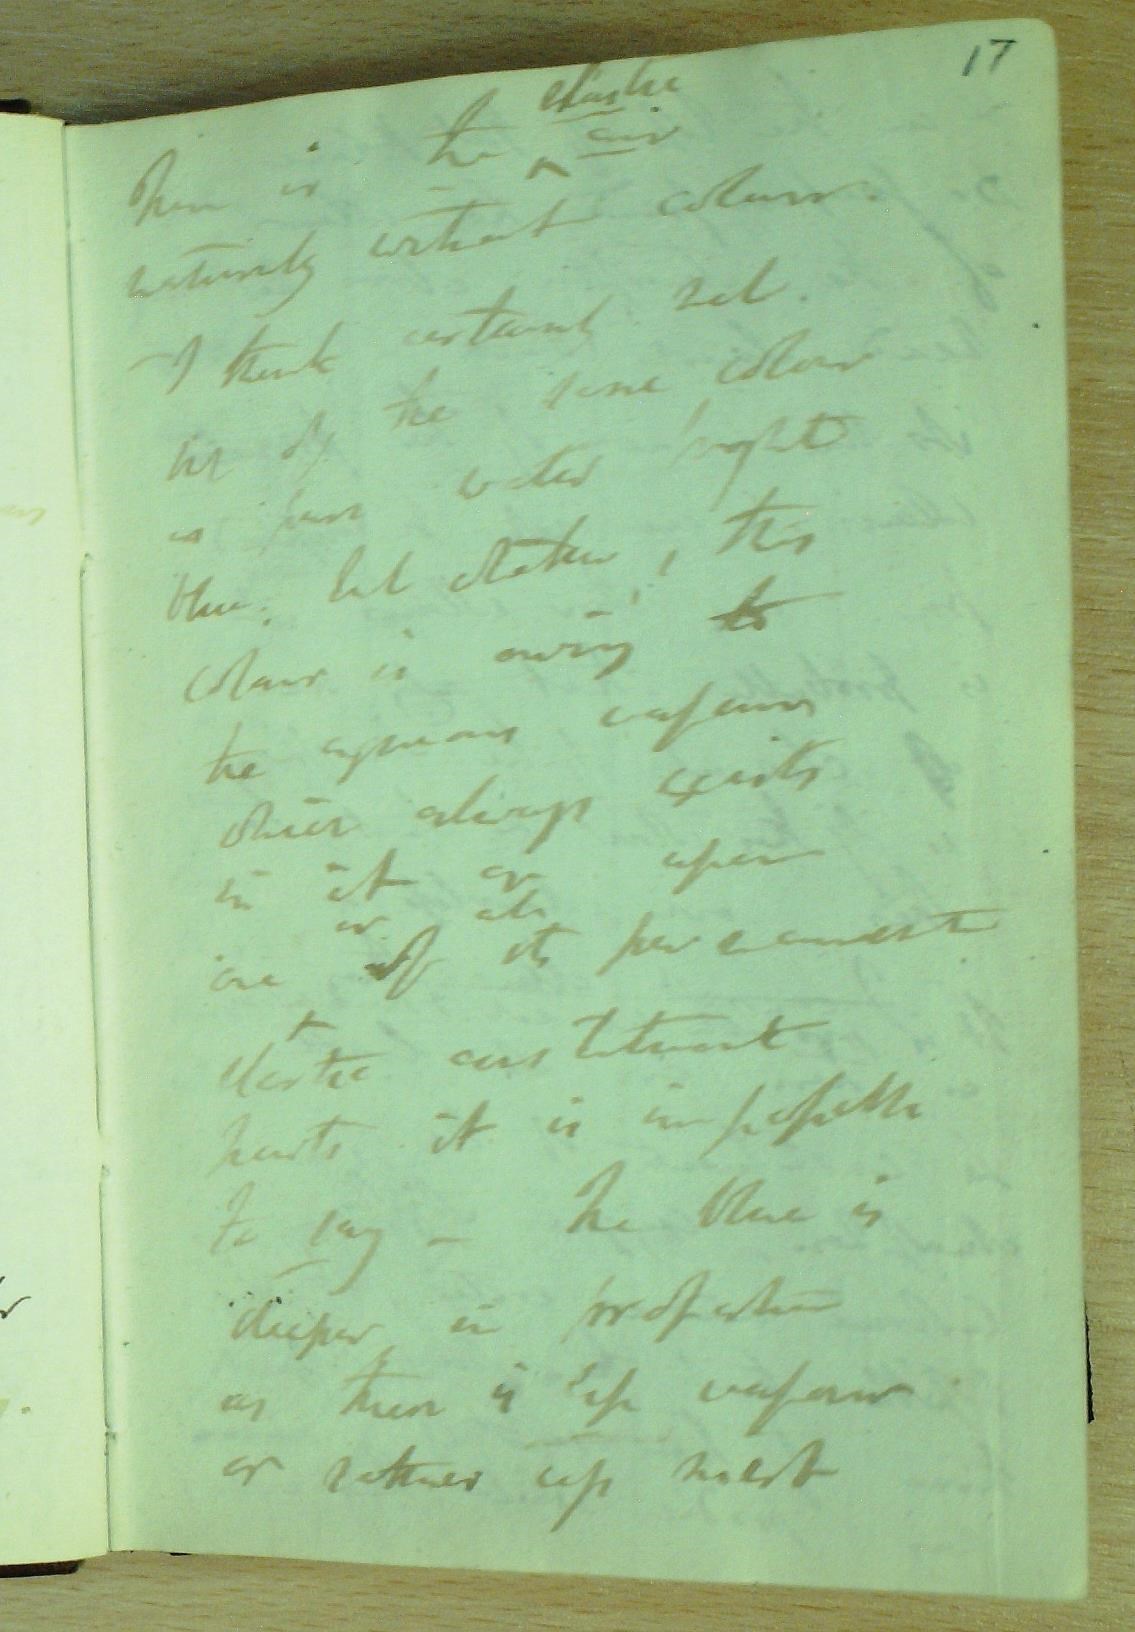 17
elastic
Then is the ^ air
naturally without colour.
- I think certainly not.
for of the same colour
as pure water bright
blue; but whether, this
colour is owing to
the aqueous vapour
which always exists
in it or upon
or its
one of its permanent
elastic constituent
parts it is impossible
to say - The blue is
deeper in proportion
as there is less vapour
or rather less mist